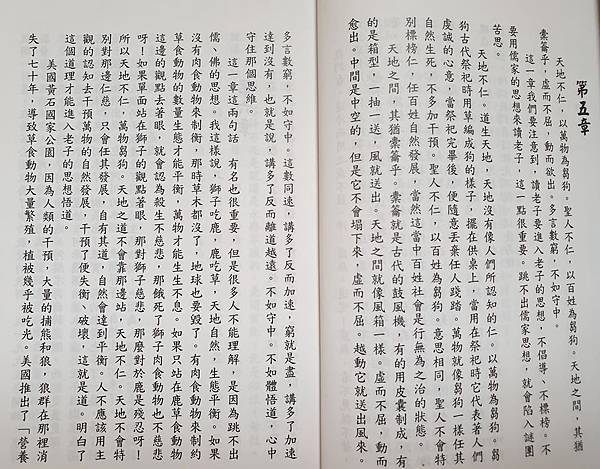 第五章
天地不仁，以萬物為芻狗。聖人不仁，以百姓為芻狗。天地之間，其猶
橐籥乎，虛而不屈，動而欲出。多言數窮，不如守中。
這一章我們要注意到，讀老子要進入老子的思想，不倡導、不標榜。不
要用儒家的思想來讀老子，這一點很重要。跳不出儒家思想，就會陷入謎團
苦思。
天地不仁。道生天地，天地沒有像人們所認知的仁。以萬物為芻狗。芻
狗古代祭祀時用草編成狗的樣子，擺在供桌上，當用在祭祀時它代表著人們
虔誠的心意，當祭祀完畢後，便隨意丟棄任人踐踏。萬物就像芻狗一樣任其
自然生死，不多加干預。聖人不仁，以百姓為芻狗。意思相同，聖人不會特
別標榜仁，任百姓自然發展，當然這當中百姓社會是行無為之治的狀態。
天地之間，其猶橐籥乎。橐籥就是古代的鼓風機，有的用皮囊制成，有
的是箱型，一抽一送，風就送出。天地之間就像風箱一樣，虛而不屈，動而
愈出。中間是中空的，但是它不會塌下來，虛而不屈。越動它就送出風來。
多言數窮，不如守中。這數同速，講多了反而加速，窮就是盡，講多了加速
達到沒有，也就是說，講多了反而離道越遠。不如守中。不如體悟道，心中
守住那個思維。
這一章這兩句話，有名也很重要，但是很多人不能理解，是因為跳不出
儒、佛的思想。我這樣說，獅子吃鹿，鹿吃草，天地自然，生態平衡。如果
沒有肉食動物來制衡，那時草木都沒了，地球也要毀了。有肉食動物來制約
草食動物的數量生態才能平衡，萬物才能生生不息。如果只站在鹿草食動物
這邊的觀點去著眼，就會認為殺生不慈悲，那餓死了獅子肉食動物也不慈悲
呀！如果單面站在獅子的觀點著眼，那對獅子慈悲，那麼對於鹿是殘忍呀！
所以天地不仁，萬物芻狗。天地之道不會靠那邊站，天地不仁。天地不會特
別對那邊仁慈，只會任其發展，自有其道，自然會達到平衡。人不應該用主
觀的認知去干預萬物的自然發展，干預了便失衡、破壞，這就是道。明白了
這個道理才能進入老子的思想悟道。
美國黃石國家公園，因為人類的干預，大量的捕熊和狼，狼群在那裡消
失了七十年，導致草食動物大量繁殖，植被幾乎被吃光。美國推出了「營養